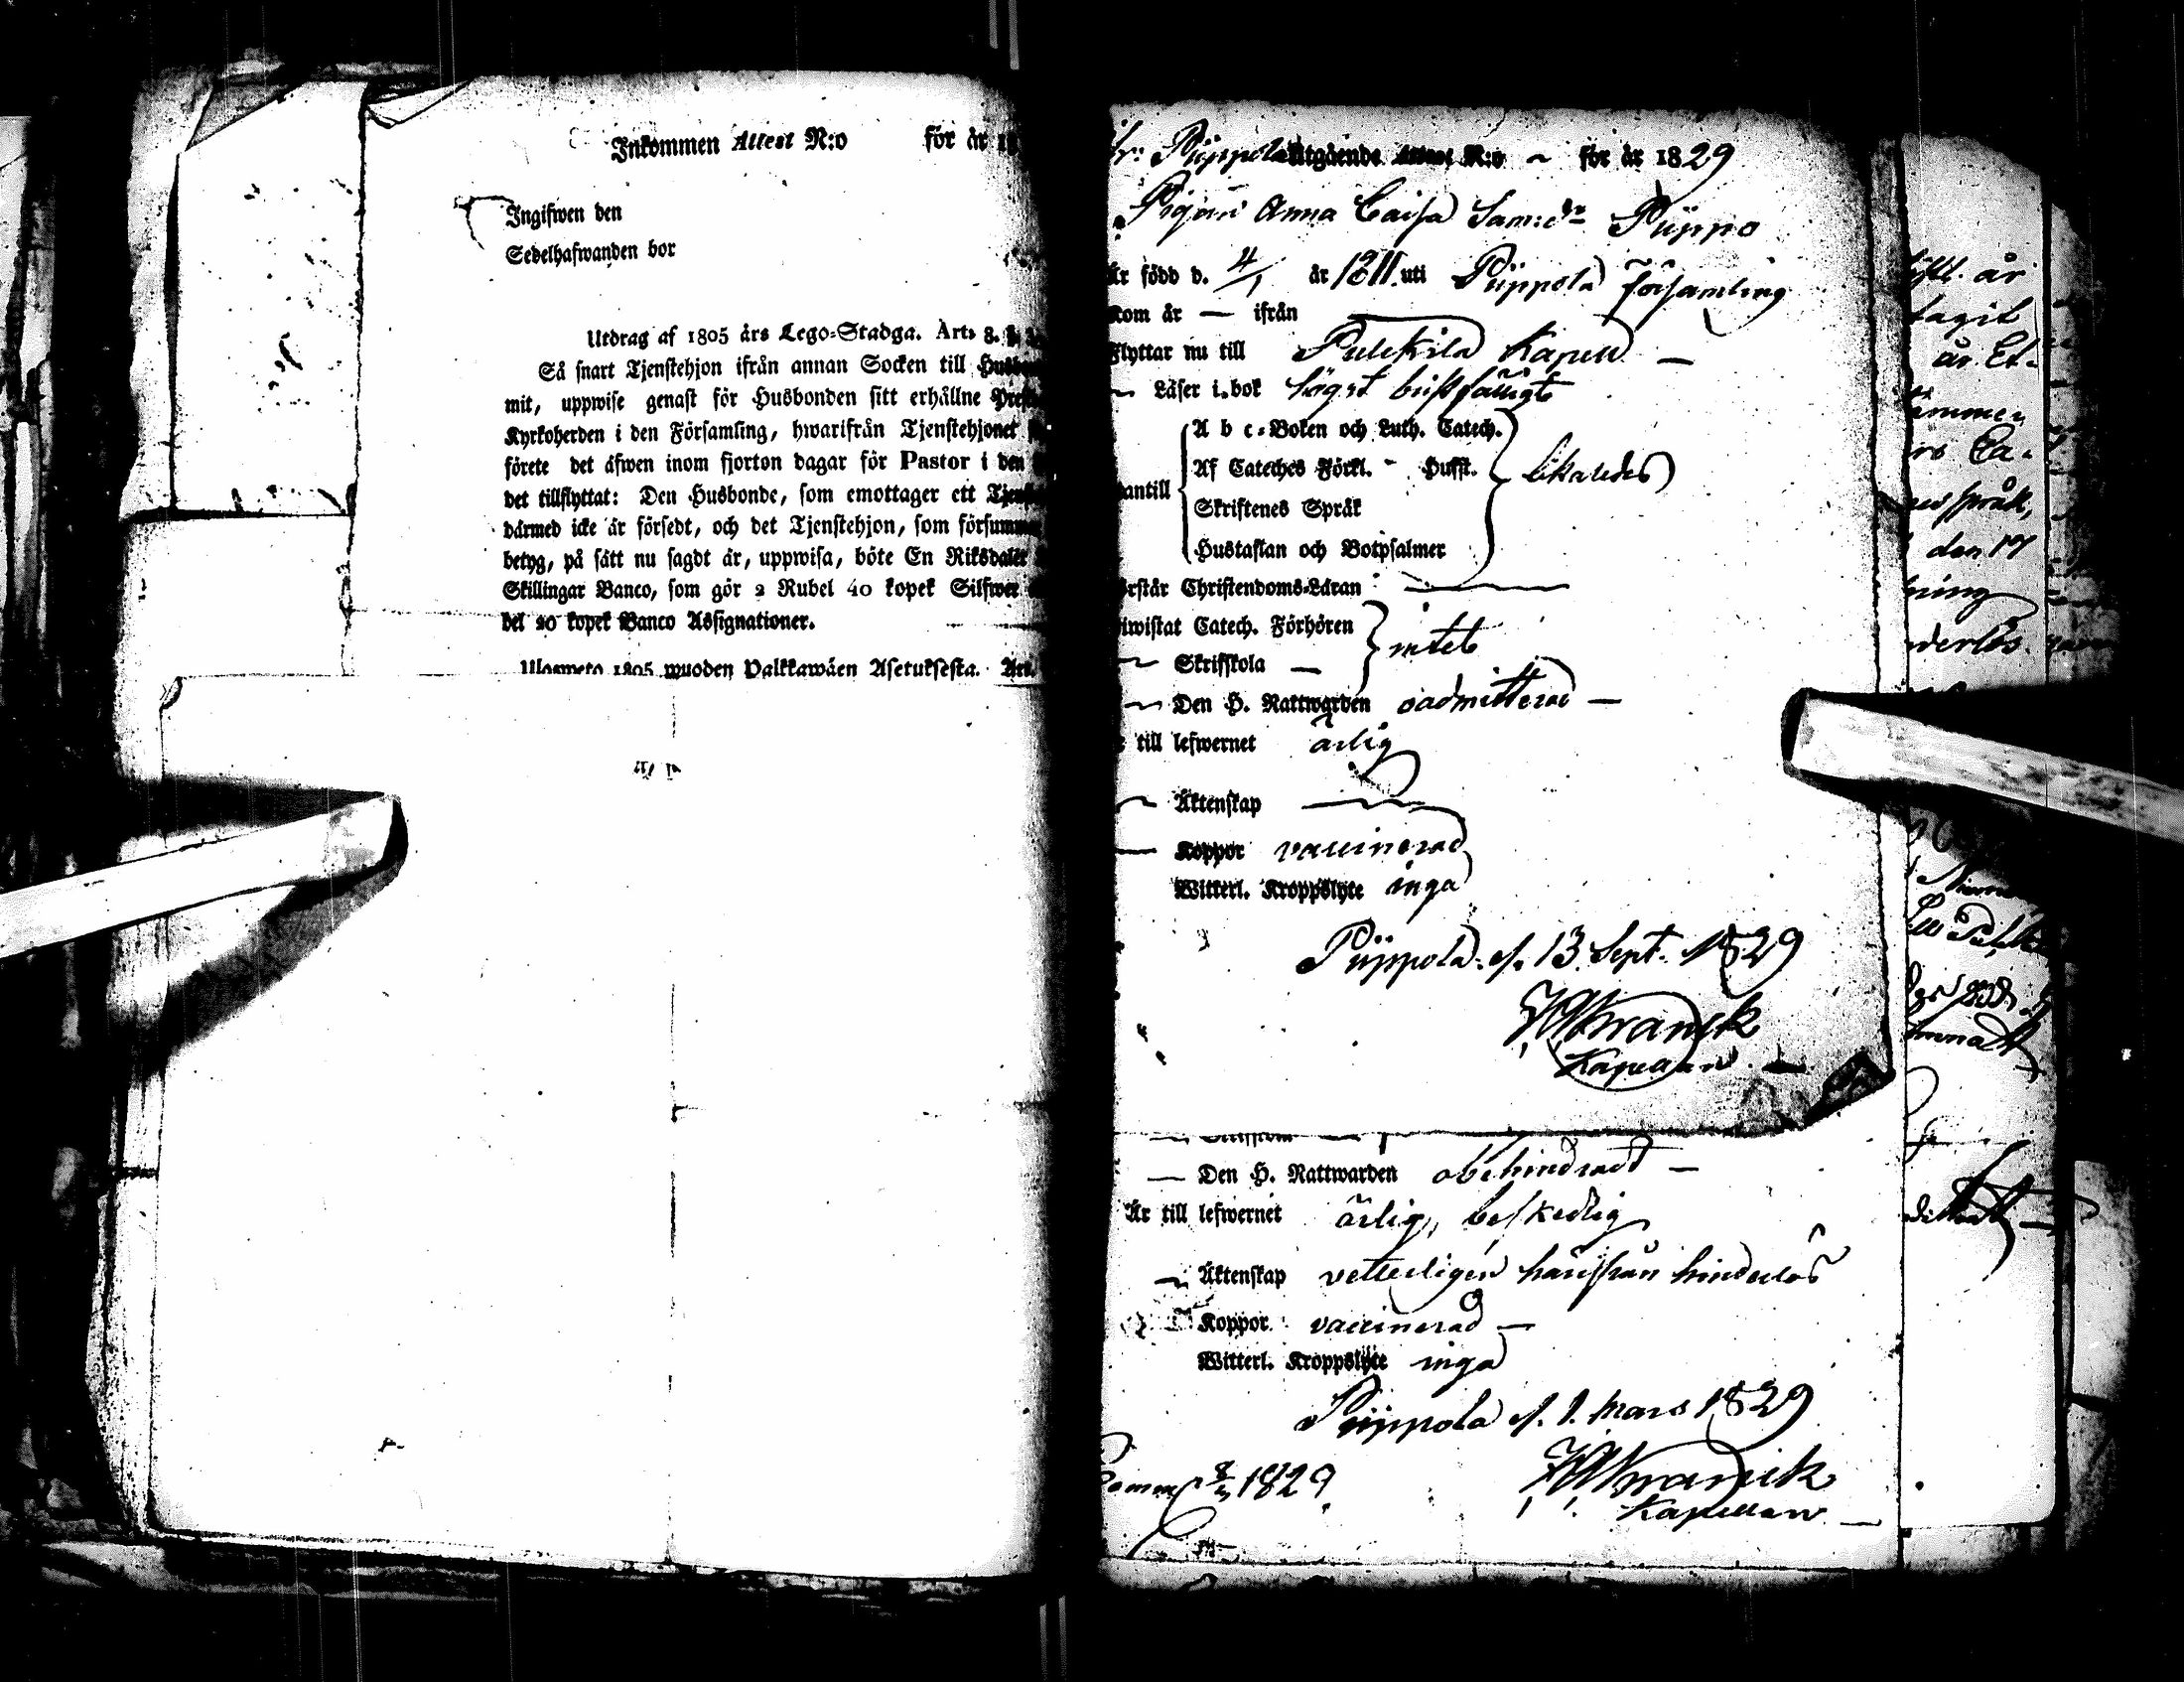 Inkommen Attest N:o för år 18
Ingifwen den
Sedelhafwanden bor
Utdrag af 1805 års Lego-Stadga. Art. 8. §.
Så snart Tjenstehjon ifrån annan Socken till
mit, uppwise genast för Husbonden sitt erhållne
Kyrkoherden i den Församling, hwarifrån Tjenstehjonet
förete det äfwen inom fjorton dagar för Pastor i den
det tillflyttat: Den Husbonde, som emottager ett
därmed icke är försedt, och det Tjenstehjon, som
betyg, på sätt nu sagdt är, uppwisa, böte En Riksdaler
Skillingar Banco, som gör 2 Rubel 40 kopek Silfwer
bel 20 kopek Banco Assignationer.
1805 wuoden Palkkawäen Asetuksesta. Art.
fr: Piippola Utgående Attest N:o för år 1829
Pigan Anna Caisa Sam:dr Piippo
Är född d. 4/1 år 1811 uti Piippola Församling
Kom år — ifrån
Flyttar nu till Pulkila Kapell —
Läser i bok högst bristfälligt
A b c-Boken och Luth. Catech.
Af Cateches Förkl. - Husfl.
antill likaledes
Skriftenes Språk
Hustaflan och Botpsalmer
rstår Christendoms-Läran —
iwistat Catech. Förhören
intet
Skrifskola —
Den H. Nattwarden oadmitterad —
till lefwernet ärlig
Äktenskap —
Koppor vaccinerad
Witterl. Kroppslyte inga
Piippola d. 13 Sept. 1829
Kapellan
— Den H. Nattwarden obehindrad —
Är till lefwernet ärlig, beskedlig
Äktenskap vetterligen härifrån hinderlös
Koppor vaccinerad —
Witterl. Kroppslyte inga
Piippola d. 1. Mars 1829
1829
Kapellan
år
tagit
år Et-
Ca-
språk,
den 17
ning
derlös.